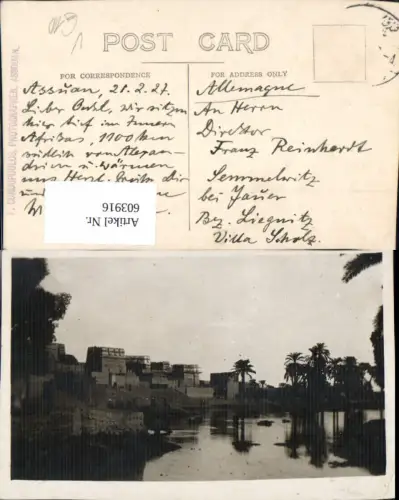 POST CARD
FOR CORRESPONDENCE
FOR ADDRESS ONLY
Assuan, 21.2.27.
Lieber Onkel, wir sitzen
hier tief im Innern
Afrikas, 1100 km
südlich von Alexan-
drien u. wärmen
uns
Allemagne
An Herrn
Direktor
Franz Reinhardt
Semmelwitz
bei Jauer
Bez. Liegnitz
Villa Scholz.
Artikel Nr.
603916
PHOTOGRAPHER, ASSOUAN.